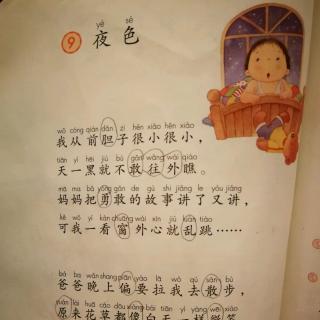 yè sè
9 夜色
wǒ cóng qián dǎn zi hěn xiǎo hěn xiǎo
我从前胆子很小很小，
tiān yì hēi jiù bù gǎn wǎng wài qiáo
天一黑就不敢往外瞧。
mā ma bǎ yǒng gǎn de gù shi jiǎng le yòu jiǎng
妈妈把勇敢的故事讲了又讲，
kě wǒ yí kàn chuāng wài xīn jiù luàn tiào
可我一看窗外心就乱跳……
bà ba wǎn shang piān yào lā wǒ qù sàn bù
爸爸晚上偏要拉我去散步，
原来花草都像白天一样